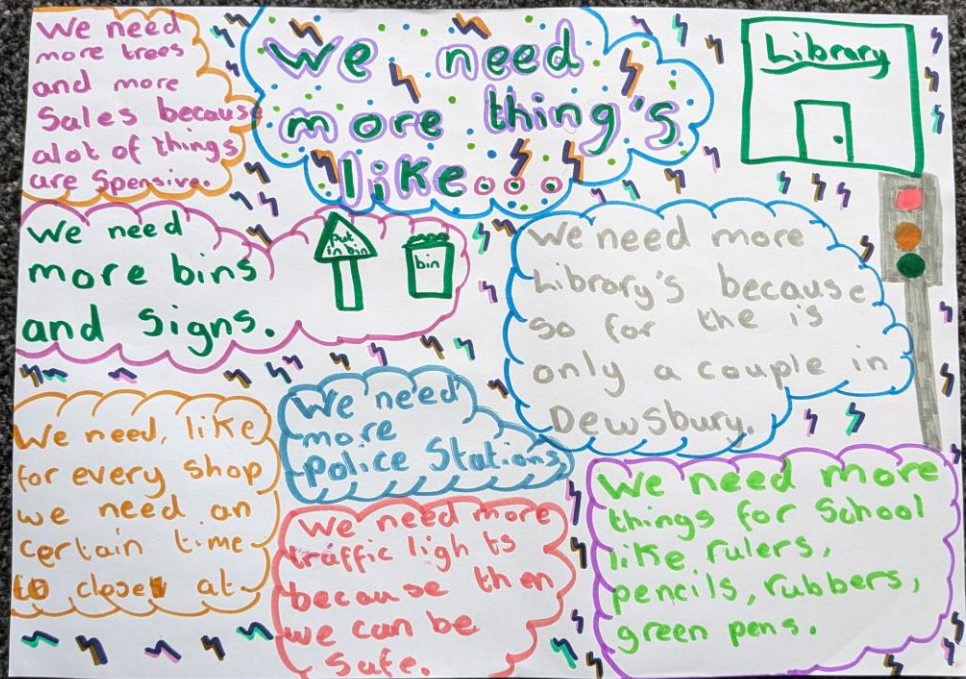 We need
more trees
and more
Sales because
alot of things
are Spensive.
We need
more thing's
like...
Library
We need
more bins
and signs.
put
in bin
bin
We need more
Library's because
so for the is
only a couple in
Dewsbury.
We need, like
for every shop
we need an
certain time
to close at
We need
more
police Stations
We need more
traffic lights
because then
we can be
safe.
We need more
things for School
like rulers,
pencils, rubbers,
green pens.